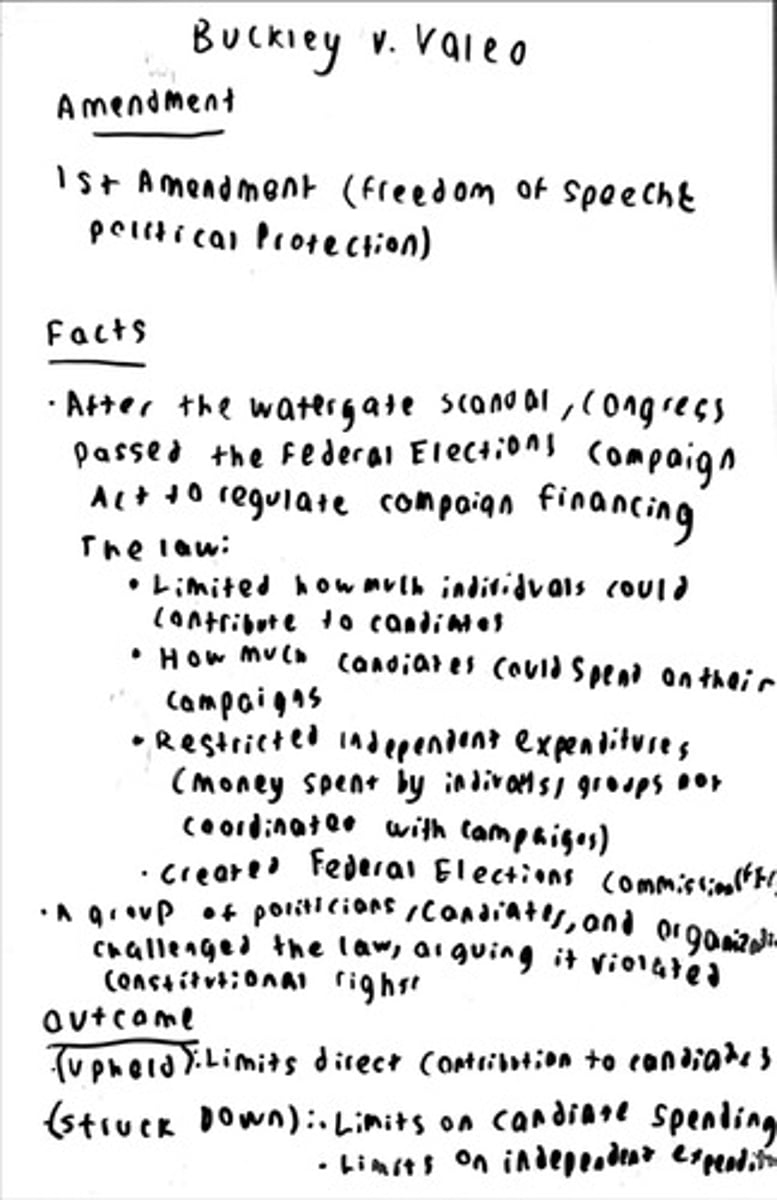 Buckley v. Valeo
Amendment
1st Amendment (freedom of speech &
political Protection)
Facts
· After the watergate scandal, Congress
passed the Federal Elections Campaign
Act to regulate campaign financing
The law:
• Limited how much individvals could
contribute to candiates
• How much candiates could spend on their
campaigns
• Restricted independent expenditures
(money spent by groups not
coordinated with campaigns)
· Created Federal Elections Commission
· A group of politicians, candiates, and
challenged the law, arguing it violated
constitutional rights
outcome
(upheld): Limits direct contribution to candiates
(struck down): · Limits on candiate spending
· Limits on independent